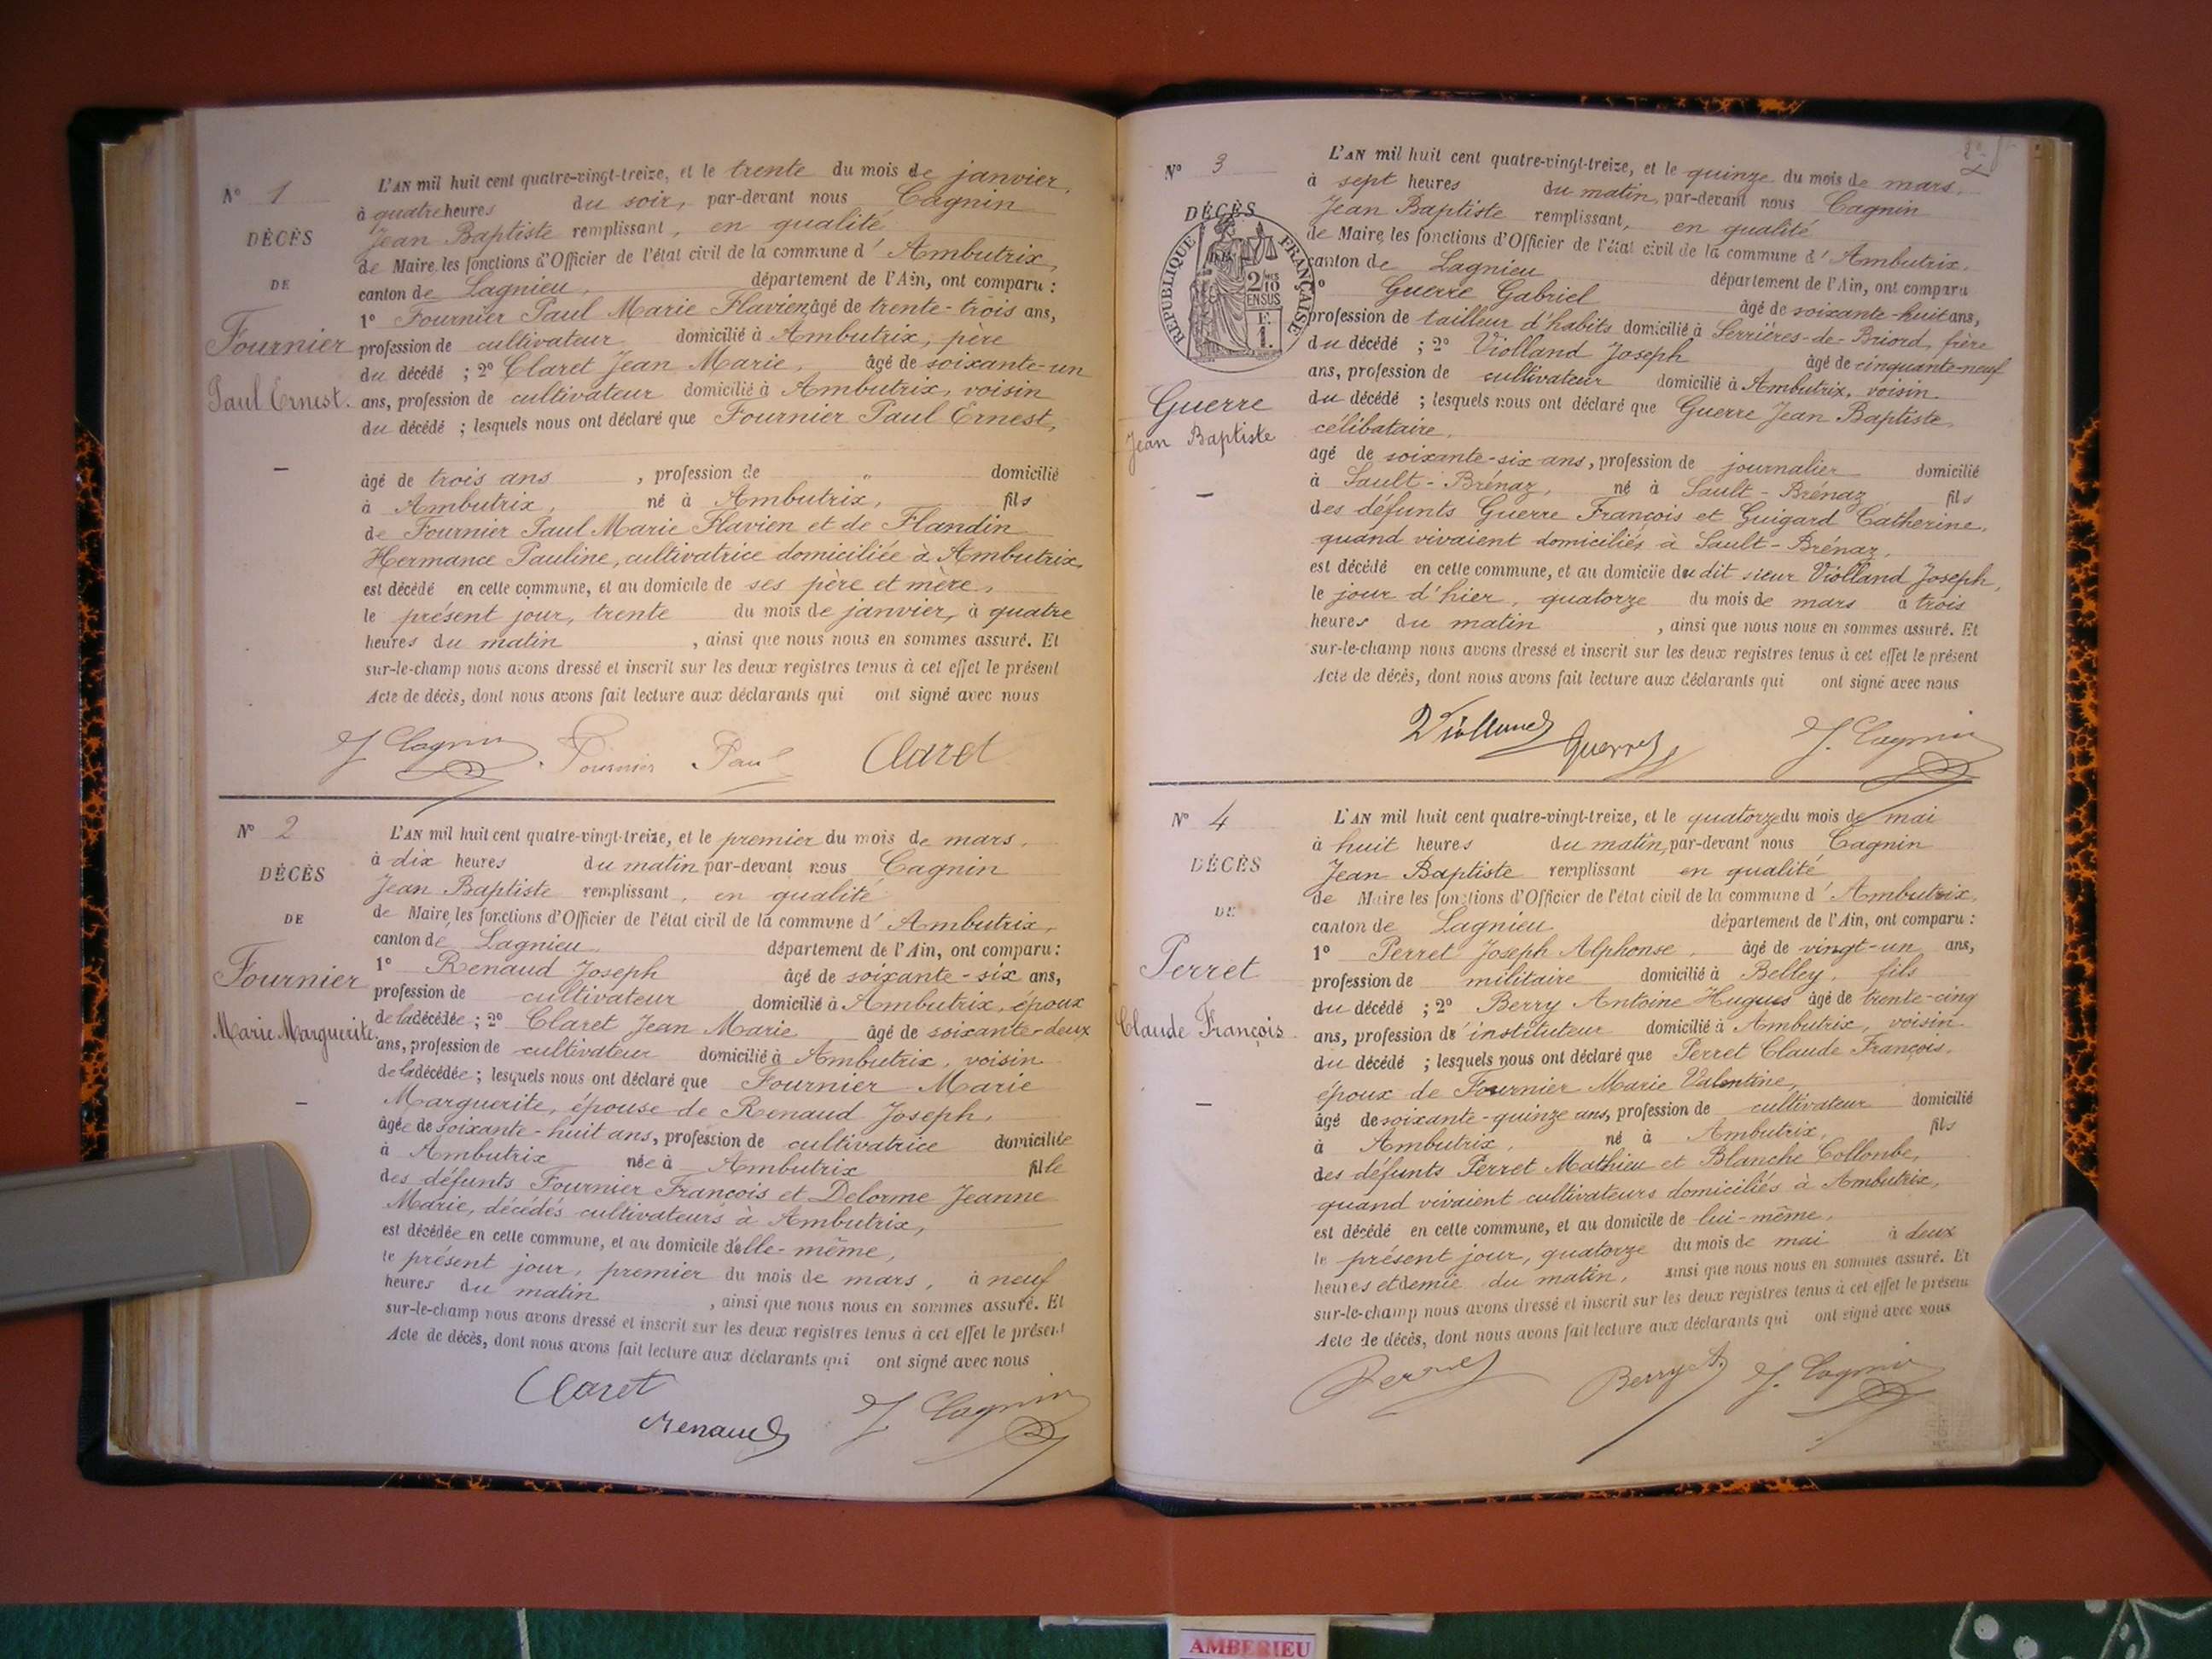 N° 1
DÉCÈS
DE
Fournier
Paul Ernest.
L'AN mil huit cent quatre-vingt-treize, et le trente du mois de janvier,
à quatre heures du soir, par-devant nous Cagnin
Jean Baptiste remplissant, en qualité
de Maire, les fonctions d'Officier de l'état civil de la commune d'Ambutrix,
canton de Lagnieu, département de l'Ain, ont comparu :
1° Fournier Paul Marie Flavien, âgé de trente-trois ans,
profession de cultivateur domicilié à Ambutrix, père
du décédé ; 2° Claret Jean Marie, âgé de soixante-un
ans, profession de cultivateur domicilié à Ambutrix, voisin
du décédé ; lesquels nous ont déclaré que Fournier Paul Ernest,
âgé de trois ans, profession de " domicilié
à Ambutrix, né à Ambutrix, fils
de Fournier Paul Marie Flavien et de Flandin
Hermance Pauline, cultivatrice domiciliée à Ambutrix,
est décédé en cette commune, et au domicile de ses père et mère,
le présent jour, trente du mois de janvier, à quatre
heures du matin, ainsi que nous nous en sommes assuré. Et
sur-le-champ nous avons dressé et inscrit sur les deux registres tenus à cet effet le présent
Acte de décès, dont nous avons fait lecture aux déclarants qui ont signé avec nous
J. Cagnin Fournier Paul Claret
N° 2
DÉCÈS
DE
Fournier
Marie Marguerite.
L'AN mil huit cent quatre-vingt-treize, et le premier du mois de mars,
à dix heures du matin par-devant nous Cagnin
Jean Baptiste remplissant, en qualité
de Maire, les fonctions d'Officier de l'état civil de la commune d'Ambutrix,
canton de Lagnieu, département de l'Ain, ont comparu :
1° Renaud Joseph âgé de soixante-six ans,
profession de cultivateur domicilié à Ambutrix, époux
de la décédée ; 2° Claret Jean Marie âgé de soixante-deux
ans, profession de cultivateur domicilié à Ambutrix, voisin
de la décédée ; lesquels nous ont déclaré que Fournier Marie
Marguerite, épouse de Renaud Joseph,
âgée de soixante-huit ans, profession de cultivatrice domiciliée
à Ambutrix née à Ambutrix fille
des défunts Fournier François et Delorme Jeanne
Marie, décédés cultivateurs à Ambutrix,
est décédée en cette commune, et au domicile d'elle-même,
le présent jour, premier du mois de mars, à neuf
heures du matin, ainsi que nous nous en sommes assuré. Et
sur-le-champ nous avons dressé et inscrit sur les deux registres tenus à cet effet le présent
Acte de décès, dont nous avons fait lecture aux déclarants qui ont signé avec nous
Claret
Renaud J. Cagnin
N° 3
DÉCÈS
RÉPUBLIQUE FRANÇAISE
2/10MES
EN SUS
F.
1.
Guerre
Jean Baptiste
L'AN mil huit cent quatre-vingt-treize, et le quinze du mois de mars,
à sept heures du matin, par-devant nous Cagnin
Jean Baptiste remplissant, en qualité
de Maire, les fonctions d'Officier de l'état civil de la commune d'Ambutrix,
canton de Lagnieu département de l'Ain, ont comparu
1° Guerre Gabriel âgé de soixante-huit ans,
profession de tailleur d'habits domicilié à Serrières-de-Briord, frère
du décédé ; 2° Violland Joseph âgé de cinquante-neuf
ans, profession de cultivateur domicilié à Ambutrix, voisin
du décédé ; lesquels nous ont déclaré que Guerre Jean Baptiste,
célibataire,
âgé de soixante-six ans, profession de journalier domicilié
à Sault-Brénaz, né à Sault-Brénaz fils
des défunts Guerre François et Guigard Catherine,
quand vivaient domiciliés à Sault-Brénaz,
est décédé en cette commune, et au domicile du dit sieur Violland Joseph,
le jour d'hier, quatorze du mois de mars à trois
heures du matin, ainsi que nous nous en sommes assuré. Et
sur-le-champ nous avons dressé et inscrit sur les deux registres tenus à cet effet le présent
Acte de décès, dont nous avons fait lecture aux déclarants qui ont signé avec nous
Violland Guerre J. Cagnin
N° 4
DÉCÈS
DE
Perret
Claude François.
L'AN mil huit cent quatre-vingt-treize, et le quatorze du mois de mai
à huit heures du matin, par-devant nous Cagnin
Jean Baptiste remplissant en qualité
de Maire les fonctions d'Officier de l'état civil de la commune d'Ambutrix,
canton de Lagnieu département de l'Ain, ont comparu :
1° Perret Joseph Alphonse, âgé de vingt-un ans,
profession de militaire domicilié à Belley, fils
du décédé ; 2° Berry Antoine Hugues âgé de trente-cinq
ans, profession d'instituteur domicilié à Ambutrix, voisin
du décédé ; lesquels nous ont déclaré que Perret Claude François,
époux de Fournier Marie Valentine,
âgé de soixante-quinze ans, profession de cultivateur domicilié
à Ambutrix, né à Ambutrix, fils
des défunts Perret Mathieu et Blanche Collombe,
quand vivaient cultivateurs domiciliés à Ambutrix,
est décédé en cette commune, et au domicile de lui-même,
le présent jour, quatorze du mois de mai à deux
heures et demie du matin, ainsi que nous nous en sommes assuré. Et
sur-le-champ nous avons dressé et inscrit sur les deux registres tenus à cet effet le présent
Acte de décès, dont nous avons fait lecture aux déclarants qui ont signé avec nous
Perret Berry A. J. Cagnin
AMBERIEU